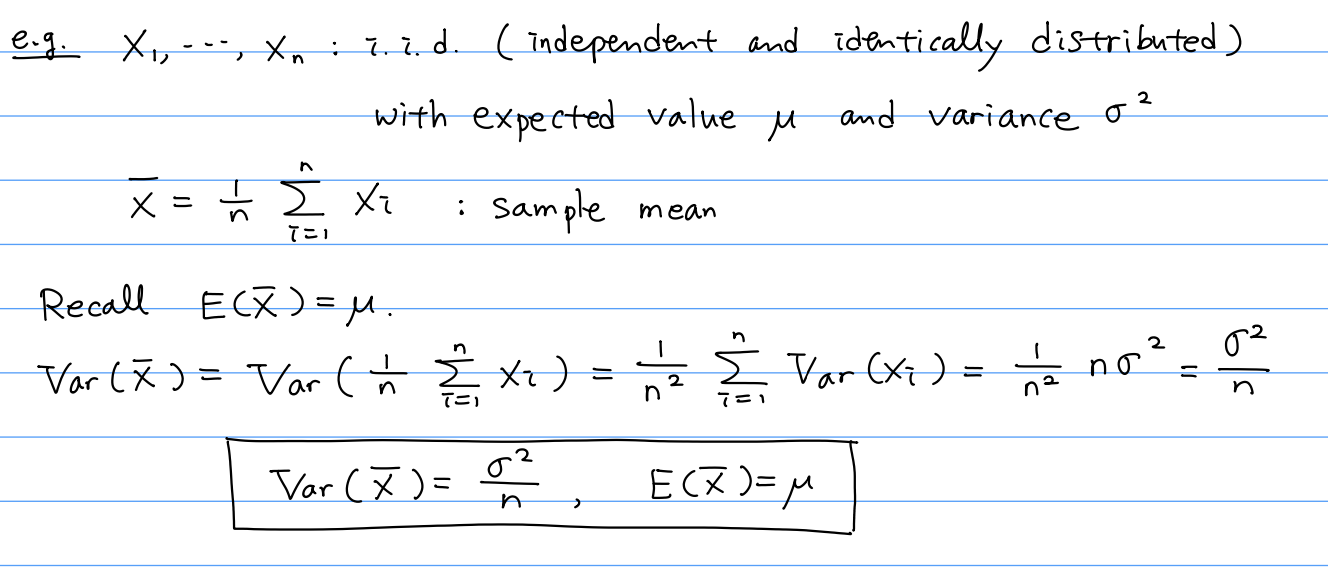 e.g. X₁, ---, Xₙ : i.i.d. (independent and identically distributed)
with expected value μ and variance σ²
X̄ = 1/n ∑ᵢ₌₁ⁿ Xᵢ : sample mean
Recall E(X̄) = μ.
Var(X̄) = Var(1/n ∑ᵢ₌₁ⁿ Xᵢ) = 1/n² ∑ᵢ₌₁ⁿ Var(Xᵢ) = 1/n² nσ² = σ²/n
Var(X̄) = σ²/n , E(X̄) = μ